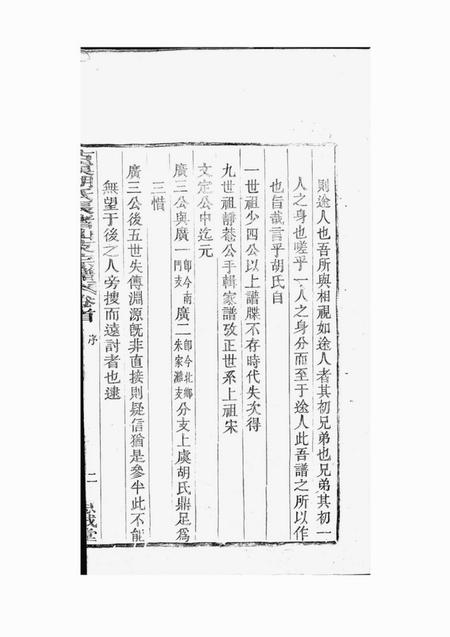 則途人也吾所與相視如途人者其初兄弟也兄弟其初一
人之身也嗟乎一人之身分而至于途人此吾譜之所以作
也旨哉言乎胡氏自
一世祖少四公以上譜牒不存時代失次得
九世祖靜菴公手輯家譜攷正世系上祖宋
文定公中迄元
廣三公與廣一即今南門支廣二即今北鄉朱家灘支分支上虞胡氏鼎足爲
三惜
廣三公後五世失傳淵源旣非直接則疑信猶是參半此不能
無望于後之人旁搜而遠討者也逮
卷首
序
二